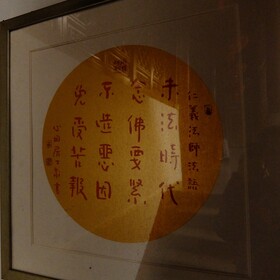 仁義法師法語
末法時代
念佛要緊
不造惡因
免受苦報